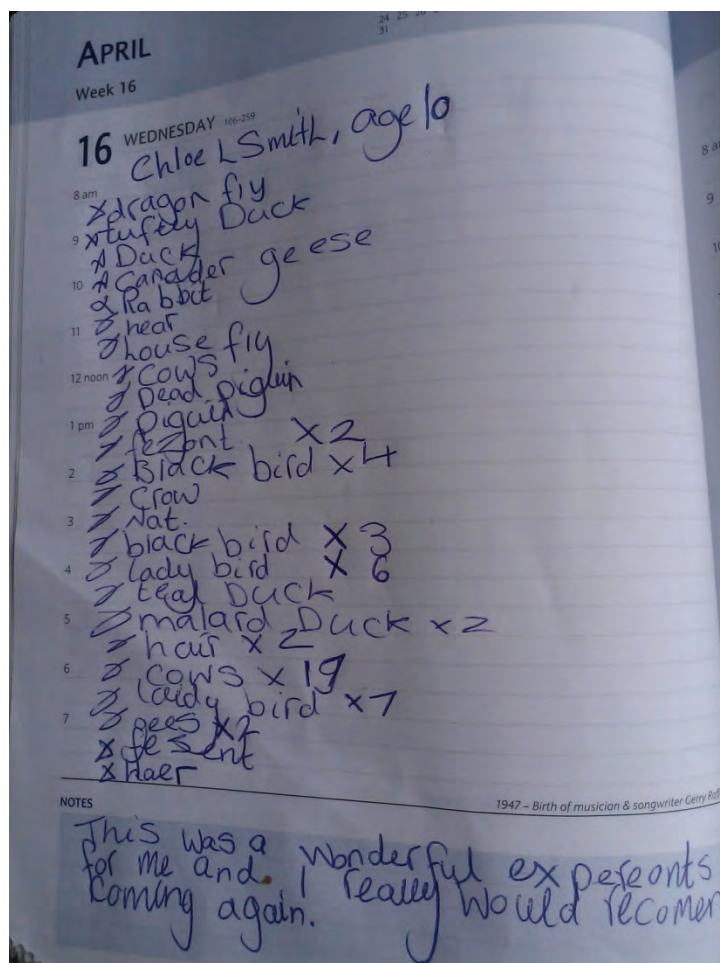 24 25 26
31
APRIL
Week 16
16 WEDNESDAY 106-259
Chloe L Smith, age 10
8 am
dragon fly
tuftey Duck
9
Duck
10
Canader geese
Rabbit
11
hear
house fly
12 noon
Cows
Dead piguin
1 pm
Piguin
fezont x2
2
Black bird x4
Crow
3
Nat.
black bird x 3
4
lady bird x 6
teal Duck
5
malard Duck x 2
hair x 2
6
cows x 19
laidy bird x7
7
gees x2
fesent
Haer
1947 – Birth of musician & songwriter Gerry
NOTES
This was a wonderful expereonts
for me and I really would recomen
coming again.
8 a
9
10